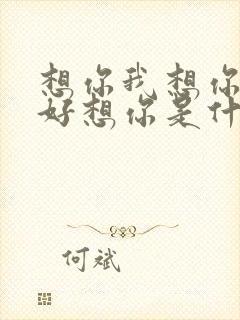 想你我想你
好想你是什
何斌